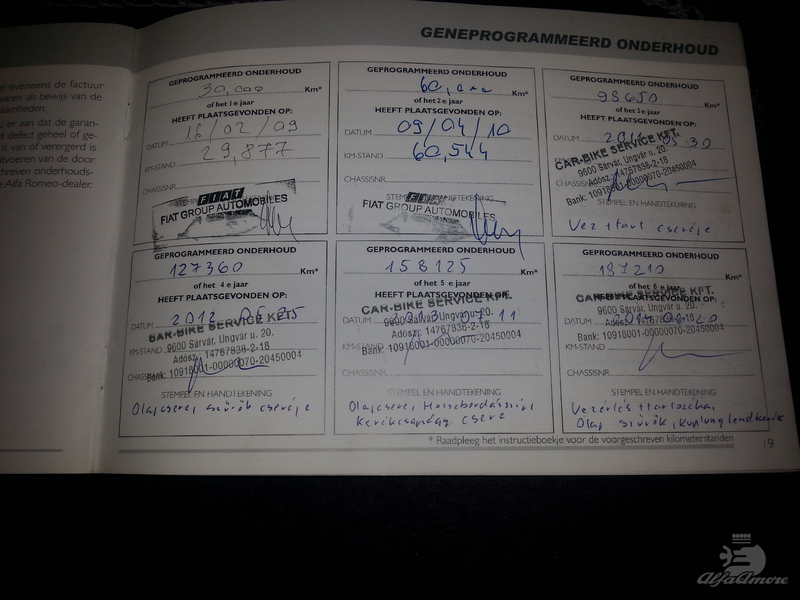 et eveneens de factuur
varen als bewijs van de
aamheden.
er aan dat de garan-
t defect geheel of ge-
is van of verergerd is
itvoeren van de door
chreven onderhouds-
e Alfa Romeo-dealer.
GENEPROGRAMMEERD ONDERHOUD
GEPROGRAMMEERD ONDERHOUD
30,000 Km*
of het 1e jaar
HEEFT PLAATSGEVONDEN OP:
DATUM 16/02/09
KM-STAND 29,877
CHASSISNR.
FIAT
FIAT GROUP AUTOMOBILES
GEPROGRAMMEERD ONDERHOUD
60,000 Km*
of het 2e jaar
HEEFT PLAATSGEVONDEN OP:
DATUM 09/04/10
KM-STAND 60,544
CHASSISNR.
STEMPEL EN HANDTEKENING
FIAT
FIAT GROUP AUTOMOBILES
GEPROGRAMMEERD ONDERHOUD
98650 Km*
of het 3e jaar
HEEFT PLAATSGEVONDEN OP:
DATUM 30
CAR-BIKE SERVICE KFT.
9600 Sárvár, Ungvár u. 20.
Adósz.: 14767838-2-18
CHASSISNR.
Bank: 10918001-00000070-20450004
STEMPEL EN HANDTEKENING
GEPROGRAMMEERD ONDERHOUD
127360 Km*
of het 4e jaar
HEEFT PLAATSGEVONDEN OP:
DATUM 2012
CAR-BIKE SERVICE KFT.
9600 Sárvár, Ungvár u. 20.
KM-STAND
Adósz.: 14767838-2-18
CHASSISNR.
Bank: 10918001-00000070-20450004
STEMPEL EN HANDTEKENING
Olajcsere, szűrők cseréje
GEPROGRAMMEERD ONDERHOUD
158125 Km*
of het 5e jaar
HEEFT PLAATSGEVONDEN OP:
CAR-BIKE SERVICE KFT.
DATUM 11
9600 Sárvár, Ungvár u. 20.
KM-STAND
Adósz.: 14767838-2-18
Bank: 10918001-00000070-20450004
CHASSISNR.
STEMPEL EN HANDTEKENING
Olajcsere,
Kerékcsapágy csere
GEPROGRAMMEERD ONDERHOUD
187210 Km*
of het 6e jaar
HEEFT PLAATSGEVONDEN OP:
CAR-BIKE SERVICE KFT.
DATUM 20
9600 Sárvár, Ungvár u. 20.
KM-STAND
Adósz.: 14767838-2-18
Bank: 10918001-00000070-20450004
CHASSISNR.
STEMPEL EN HANDTEKENING
Vezérlés
Olaj szűrők, kuplung lendkerék
* Raadpleeg het instructieboekje voor de voorgeschreven kilometerstanden
19
AlfAmore